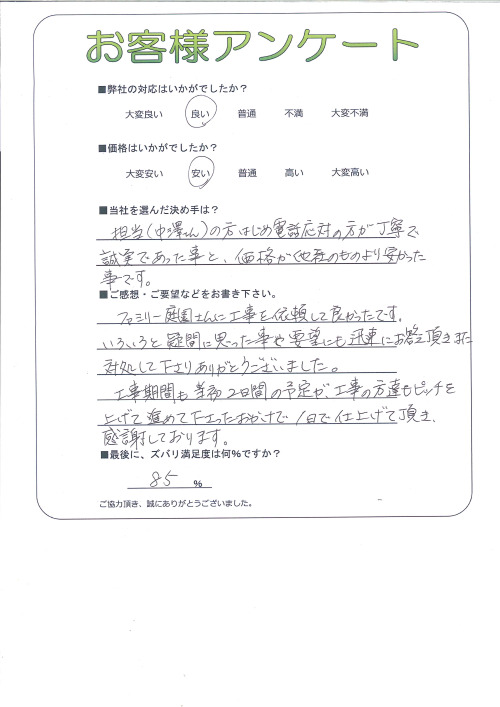 お客様アンケート
■弊社の対応はいかがでしたか？
大変良い 良い 普通 不満 大変不満
■価格はいかがでしたか？
大変安い 安い 普通 高い 大変高い
■当社を選んだ決め手は？
担当(中澤さん)の方はじめ電話応対の方が丁寧で
誠実であった事と、価格が他社のものより安かった
事です。
■ご感想・ご要望などをお書き下さい。
ファミリー庭園さんに工事を依頼して良かったです。
いろいろと疑問に思った事や要望にも迅速にお答え頂きまた
対処して下さりありがとうございました。
工事期間も当初2日間の予定が、工事の方達もピッチを
上げて進めて下さったおかげで1日で仕上げて頂き、
感謝しております。
■最後に、ズバリ満足度は何%ですか？
85 %
ご協力頂き、誠にありがとうございました。